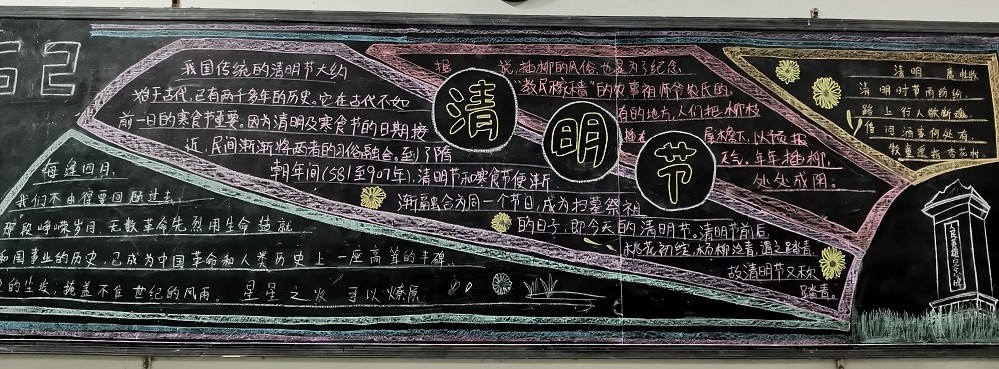 我国传统的清明节大约
始于古代,已有两千多年的历史。它在古代不如
前一日的寒食节重要。因为清明及寒食节的日期接
近,民间渐渐将两者的习俗融合,到了隋
朝年间(581至907年),清明节和寒食节便渐
渐融合为同一个节日,成为扫墓祭祖
的日子,即今天的清明节。清明节前后,
桃花初绽,杨柳泛青,遇之踏青
故清明节又称
踏青。
清明节
据 说,插柳的风俗,也是为了纪念
"教民稼穑"的农事祖师爷农氏的。
有的地方,人们把柳枝
插在 屋檐下,以预报
天气。年年插柳,
处处成阴。
清明
清明时节雨纷纷,
路上行人欲断魂。
借问酒家何处有,
牧童遥指杏花村
每逢四月,
我们不由得要回顾过去,
那段峥嵘岁月,无数革命先烈用生命铸就
和国事业的历史,已成为中国革命和人类历史上一座高耸的丰碑。
的生发,掩盖不住世纪的风雨。星星之火可以燎原